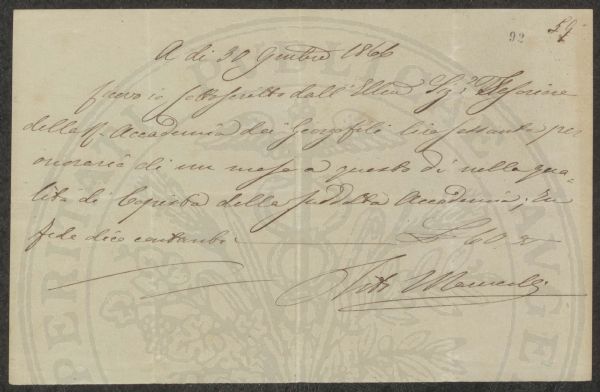 92 59
A dì 30 9mbre 1866
Ricevo io sottoscritto dall' Illmo Sigr Tesoriere
della R. Accademia dei Georgofili lire sessanta per
onorario di un mese a questo dì nella qua-
lità di Copista della suddetta Accademia; In
fede dico contanti £ 60